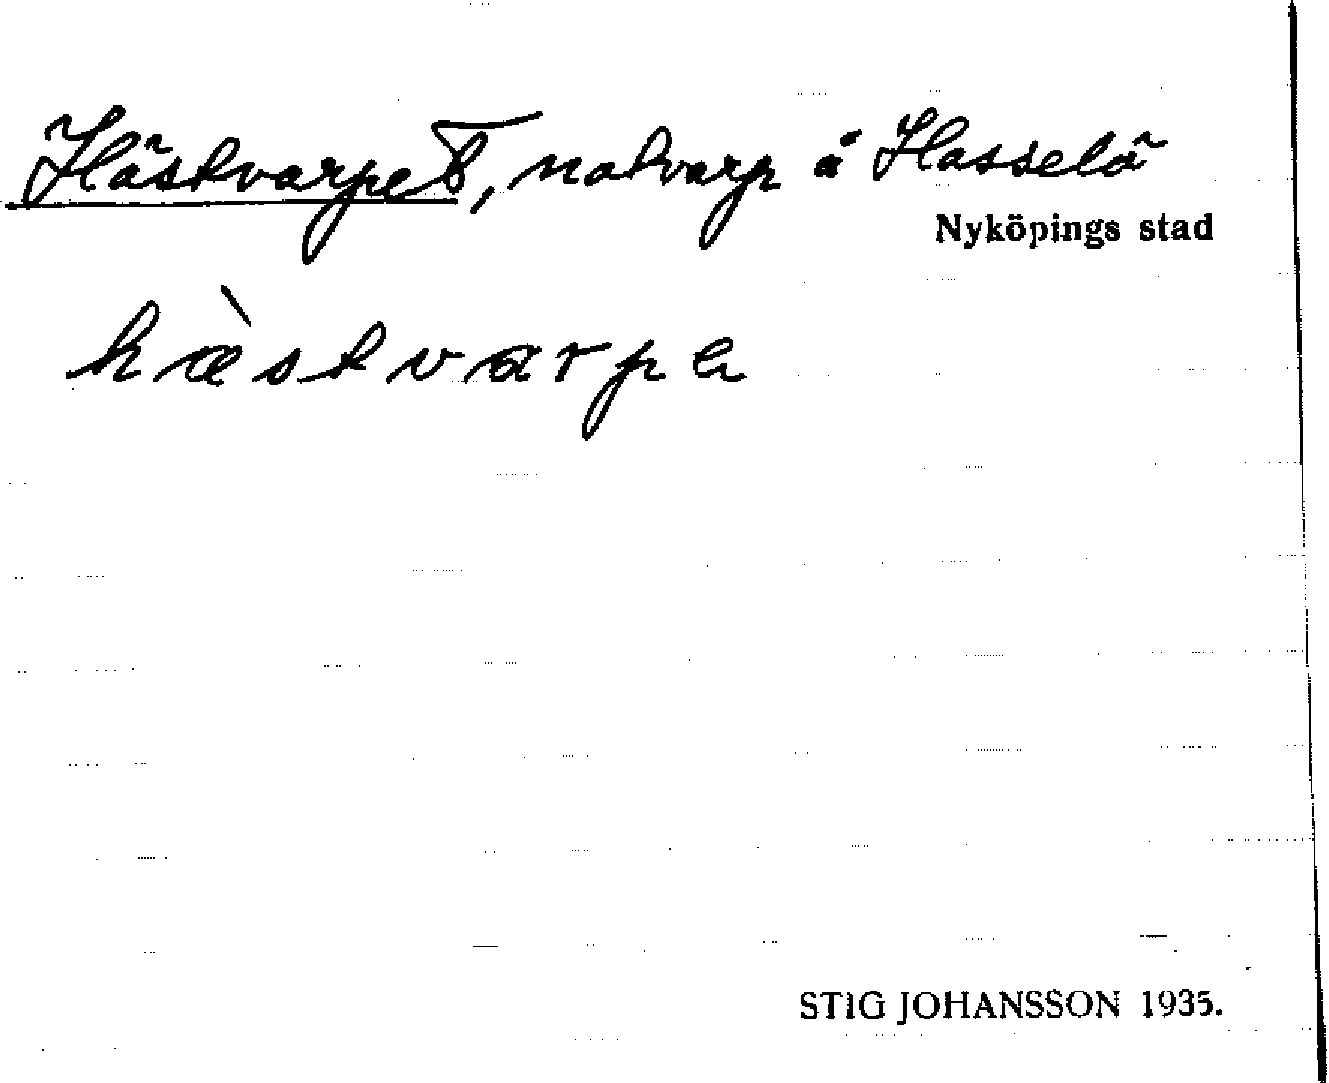 Hästvarpet, notvarp å Hasselö
Nyköpings stad
hæ̀stvarpə
STIG JOHANSSON 1935.